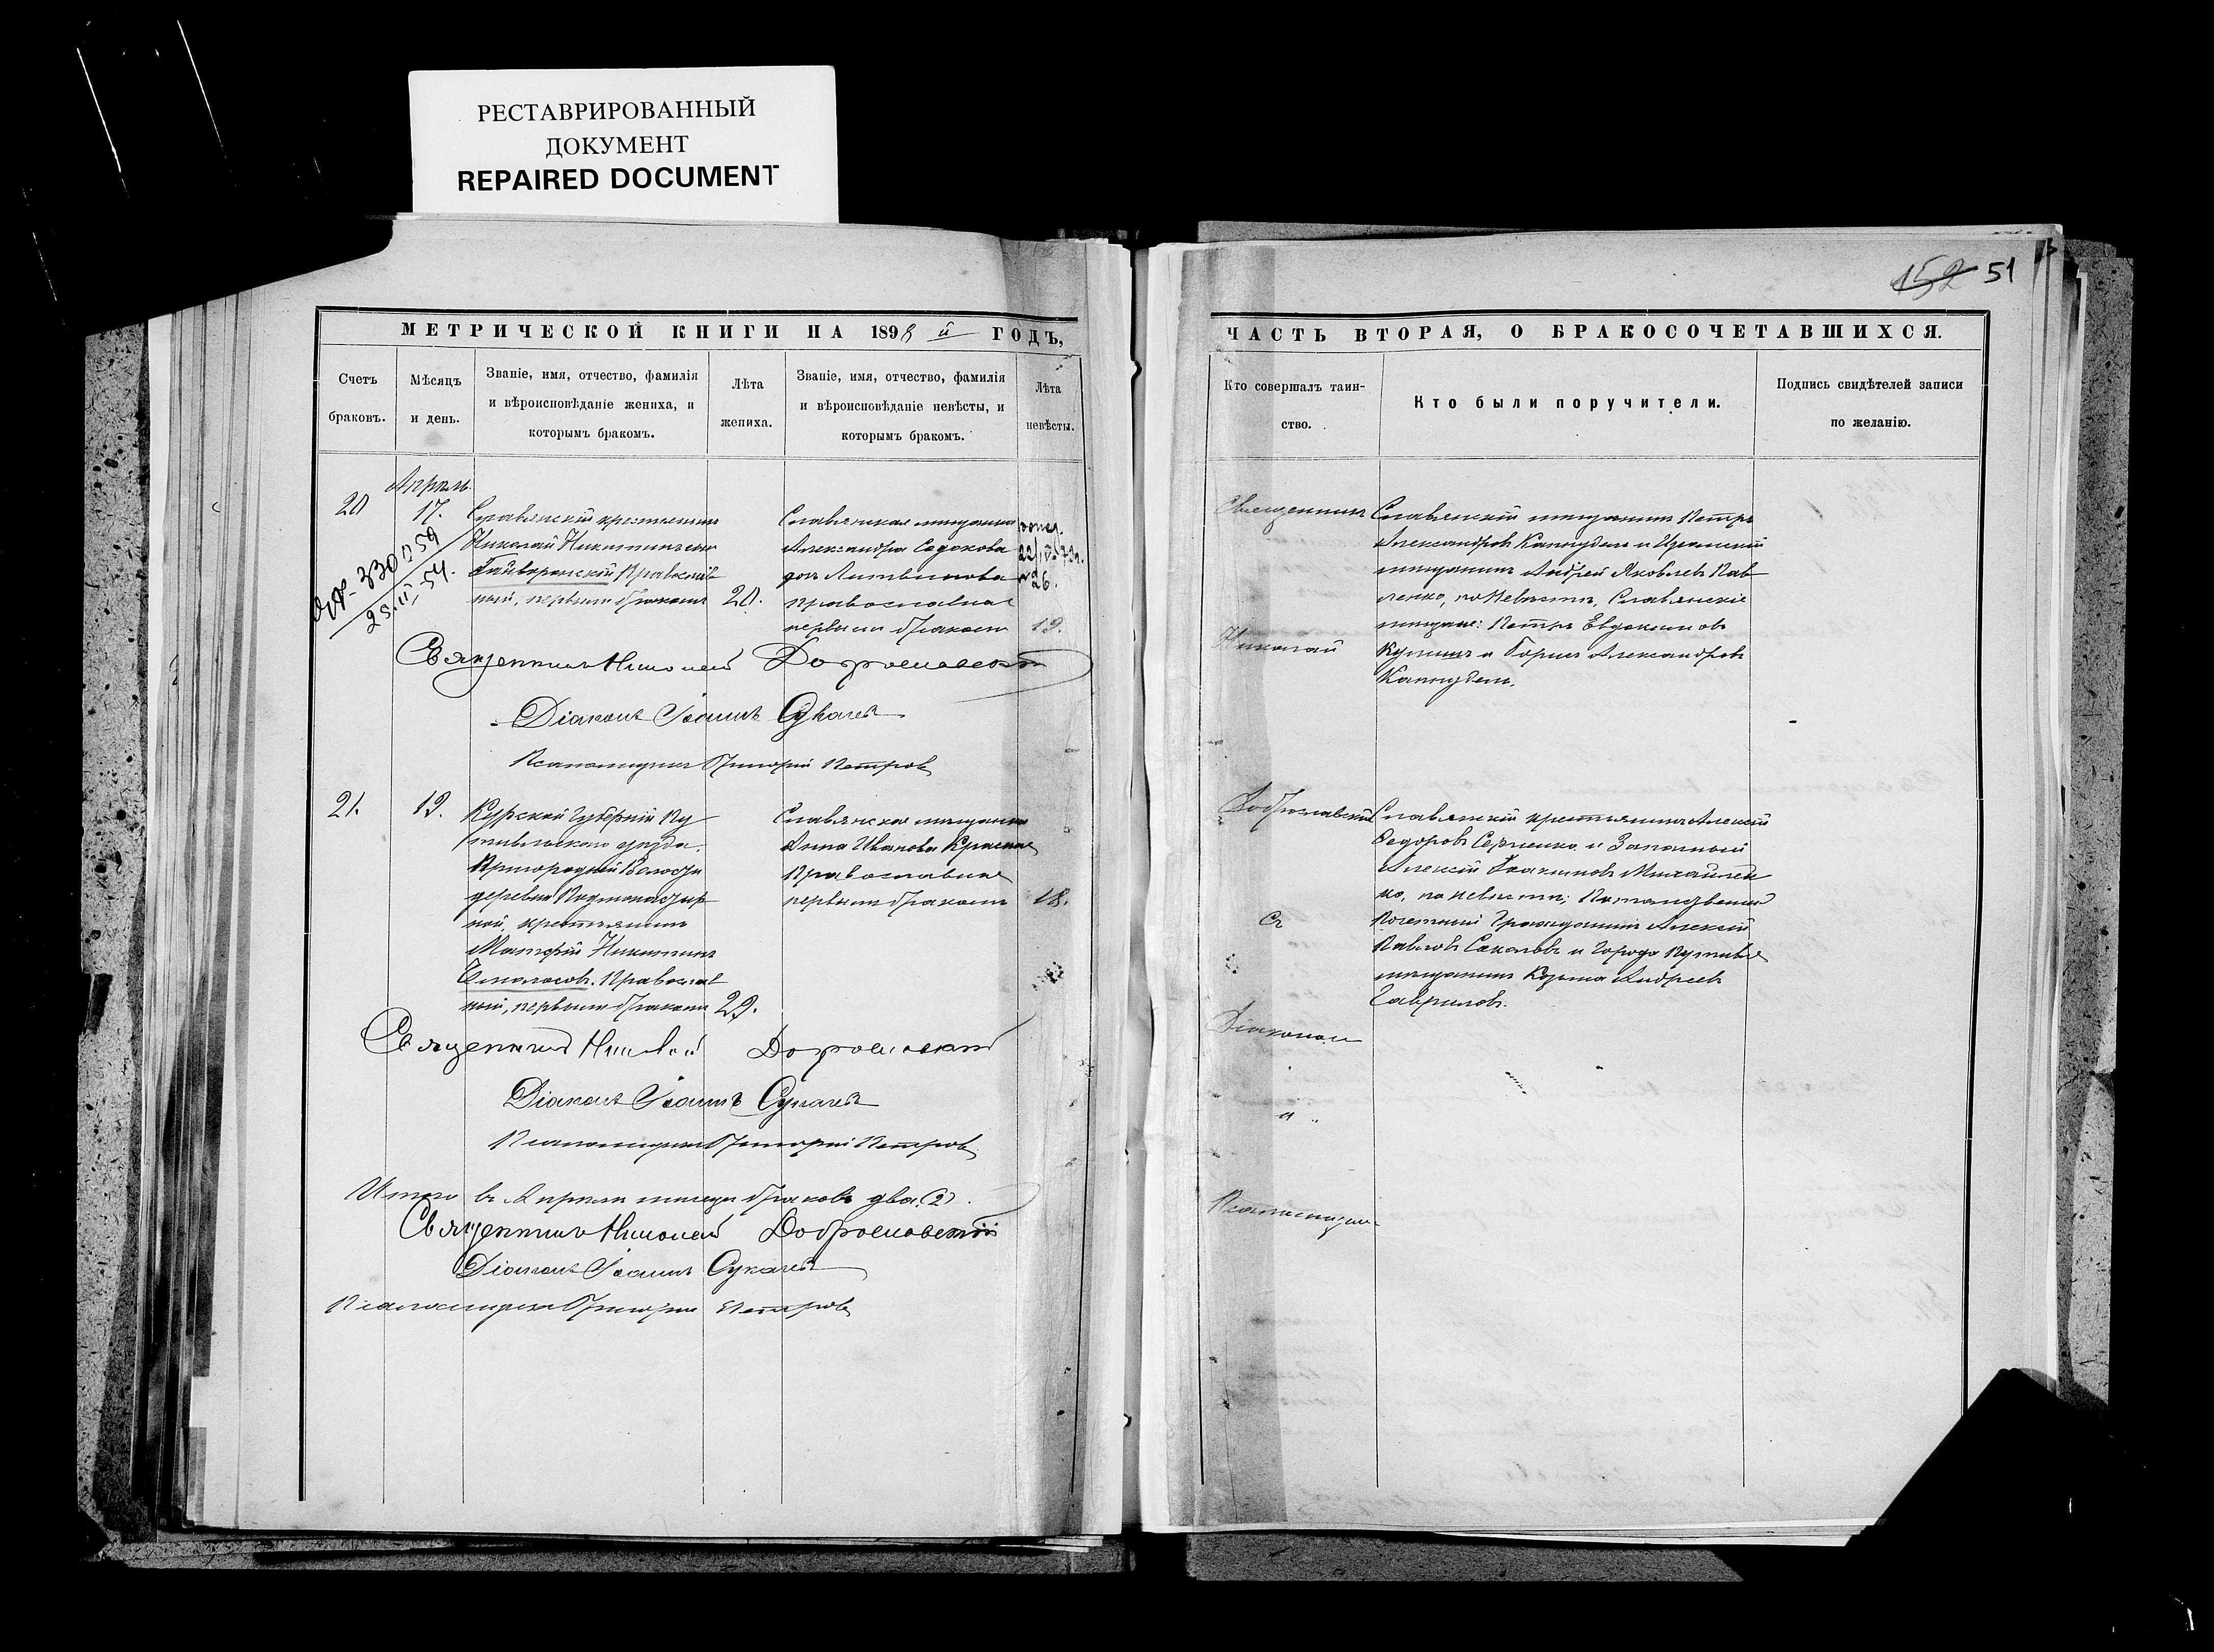 РЕСТАВРИРОВАННЫЙ
ДОКУМЕНТ
REPAIRED DOCUMENT
152 51
МЕТРИЧЕСКОЙ КНИГИ НА 1898 й ГОДЪ,
Счетъ
браковъ.
Мѣсяцъ
и день.
Званіе, имя, отчество, фамилія
и вѣроисповѣданіе жениха, и
которымъ бракомъ.
Лѣта
жениха.
Званіе, имя, отчество, фамилія
и вѣроисповѣданіе невѣсты, и
которымъ бракомъ.
Лѣта
невѣсты.
Апрѣль.
20
17.
Славянскій крестьянинъ
Николай Никитинъ
Гайворонскій Православ
ный, первымъ бракомъ
20.
Славянская мѣщанка
Александра Сидорова
дочь Литвинова
православная
первымъ бракомъ
19.
26.
25.II.54.
Священникъ Николай Доброславскій
Діаконъ Іоаннъ Сукачевъ
Псаломщикъ Григорій Петровъ
21.
19.
Курской Губерніи Пу
тивльскаго уѣзда.
Пригородней Волости
деревни Подмонастыр
ной, крестьянинъ
Матѳей Никитинъ
Православ
ный, первымъ бракомъ
29.
Славянская мѣщанка
Анна Иванова
Православная
первымъ бракомъ
18.
Священникъ Николай Доброславскій
Діаконъ Іоаннъ Сукачевъ
Псаломщикъ Григорій Петровъ
Итого въ Апрѣлѣ мѣсяцѣ браковъ два (2)
Священникъ Николай Доброславскій
Діаконъ Іоаннъ Сукачевъ
Псаломщикъ Григорій Петровъ
ЧАСТЬ ВТОРАЯ, О БРАКОСОЧЕТАВШИХСЯ.
Кто совершалъ таин-
ство.
Кто были поручители.
Подпись свидѣтелей записи
по желанію.
Священникъ
Николай
Доброславскій
съ
Діакономъ
и
Славянскій мѣщанинъ Петръ
Александровъ и Изюмскій
мѣщанинъ Андрей Яковлевъ Пав
ленко, по невѣстѣ, Славянскіе
мѣщане: Петръ Евдокимовъ
и Борисъ Александровъ
Славянскій крестьянинъ Алексѣй
Ѳедоровъ и Запасный
Алексѣй Михайлен
ко, по невѣстѣ; Потомственный
Почетный Гражданинъ Алексѣй
Павловъ Соколовъ и города Путивля
мѣщанинъ Козьма Андреевъ
Гавриловъ.